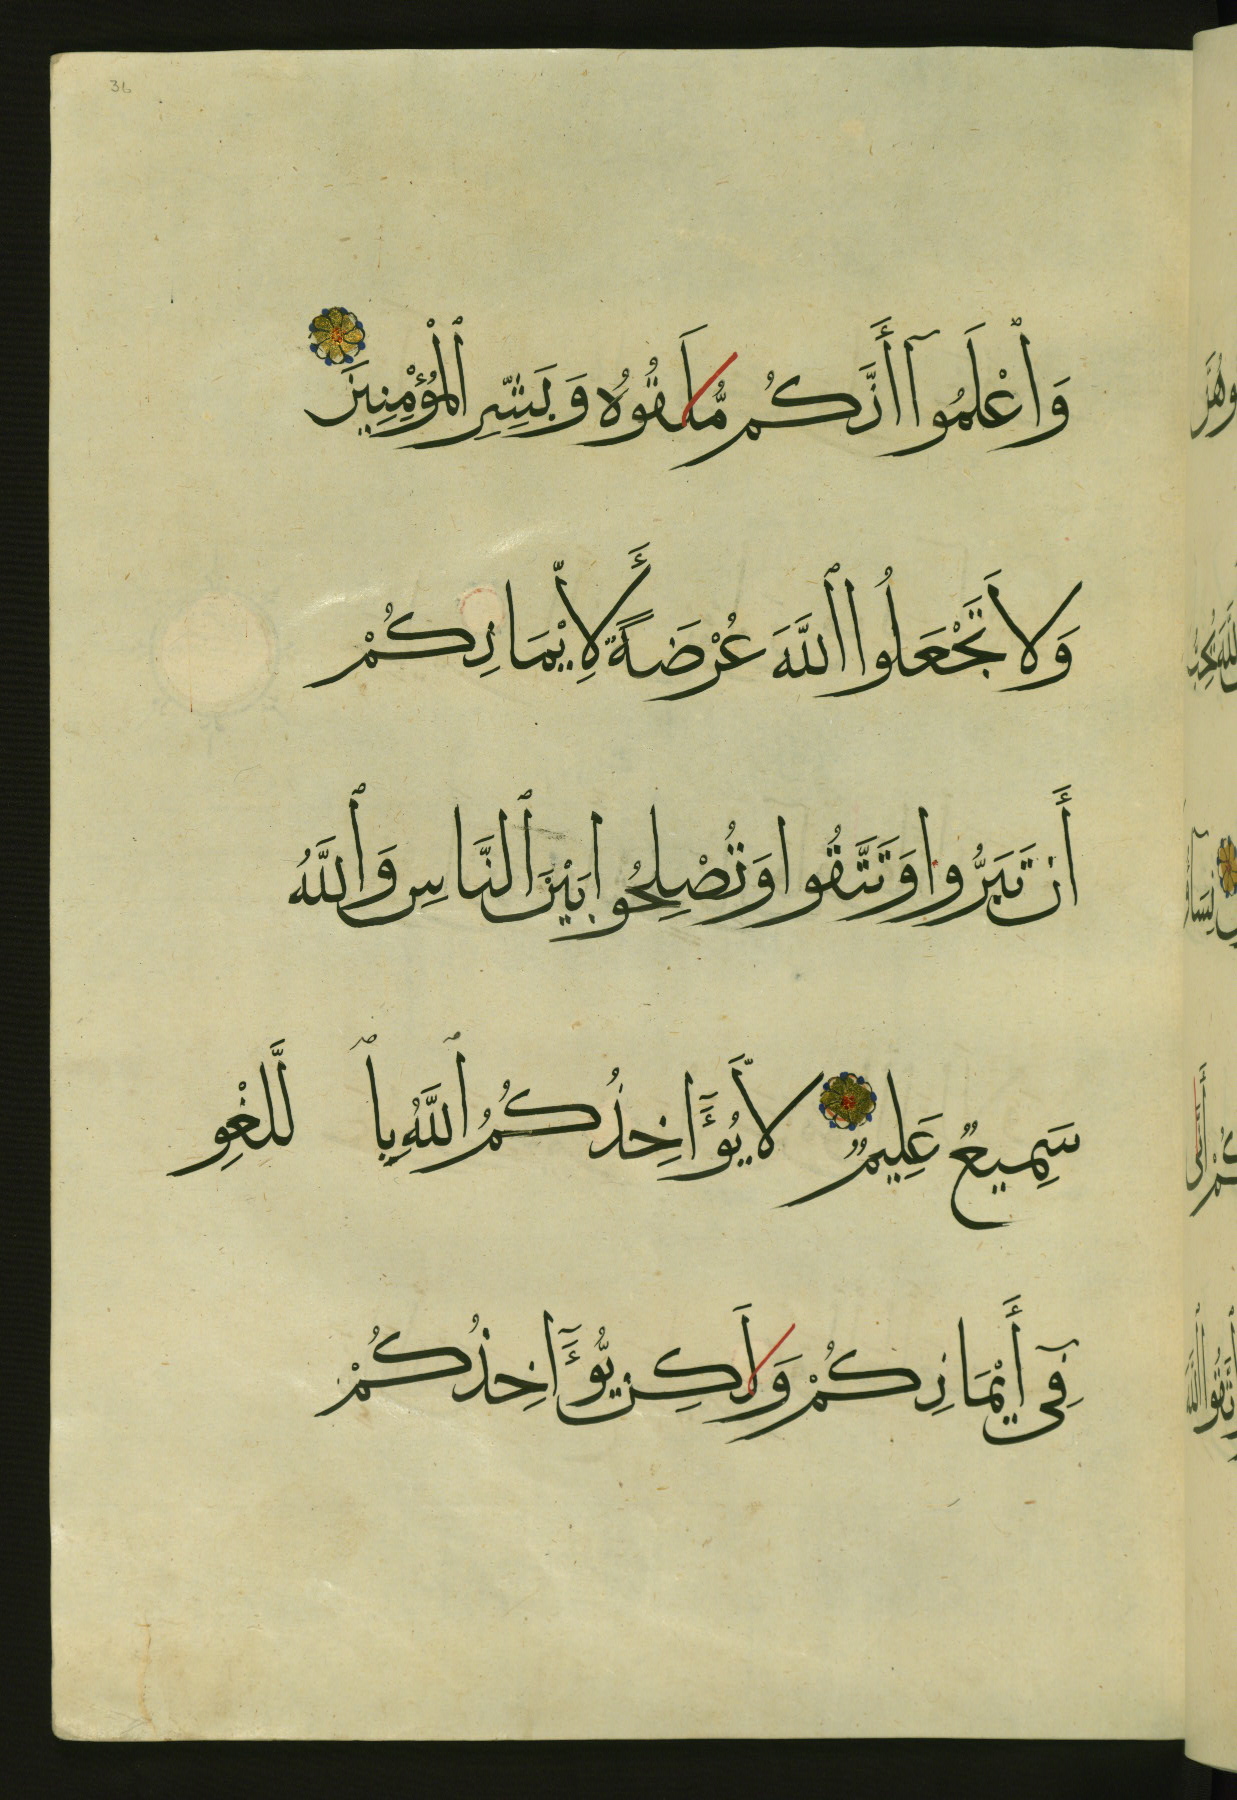 36
وَٱعْلَمُوٓا أَنَّكُم مُّلَٰقُوهُ وَبَشِّرِ ٱلْمُؤْمِنِينَ
وَلَا تَجْعَلُوا ٱللَّهَ عُرْضَةً لِّأَيْمَانِكُمْ
أَن تَبَرُّوا وَتَتَّقُوا وَتُصْلِحُوا بَيْنَ ٱلنَّاسِ وَٱللَّهُ
سَمِيعٌ عَلِيمٌ لَّا يُؤَاخِذُكُمُ ٱللَّهُ بِٱللَّغْوِ
فِىٓ أَيْمَانِكُمْ وَلَٰكِن يُؤَاخِذُكُمْ